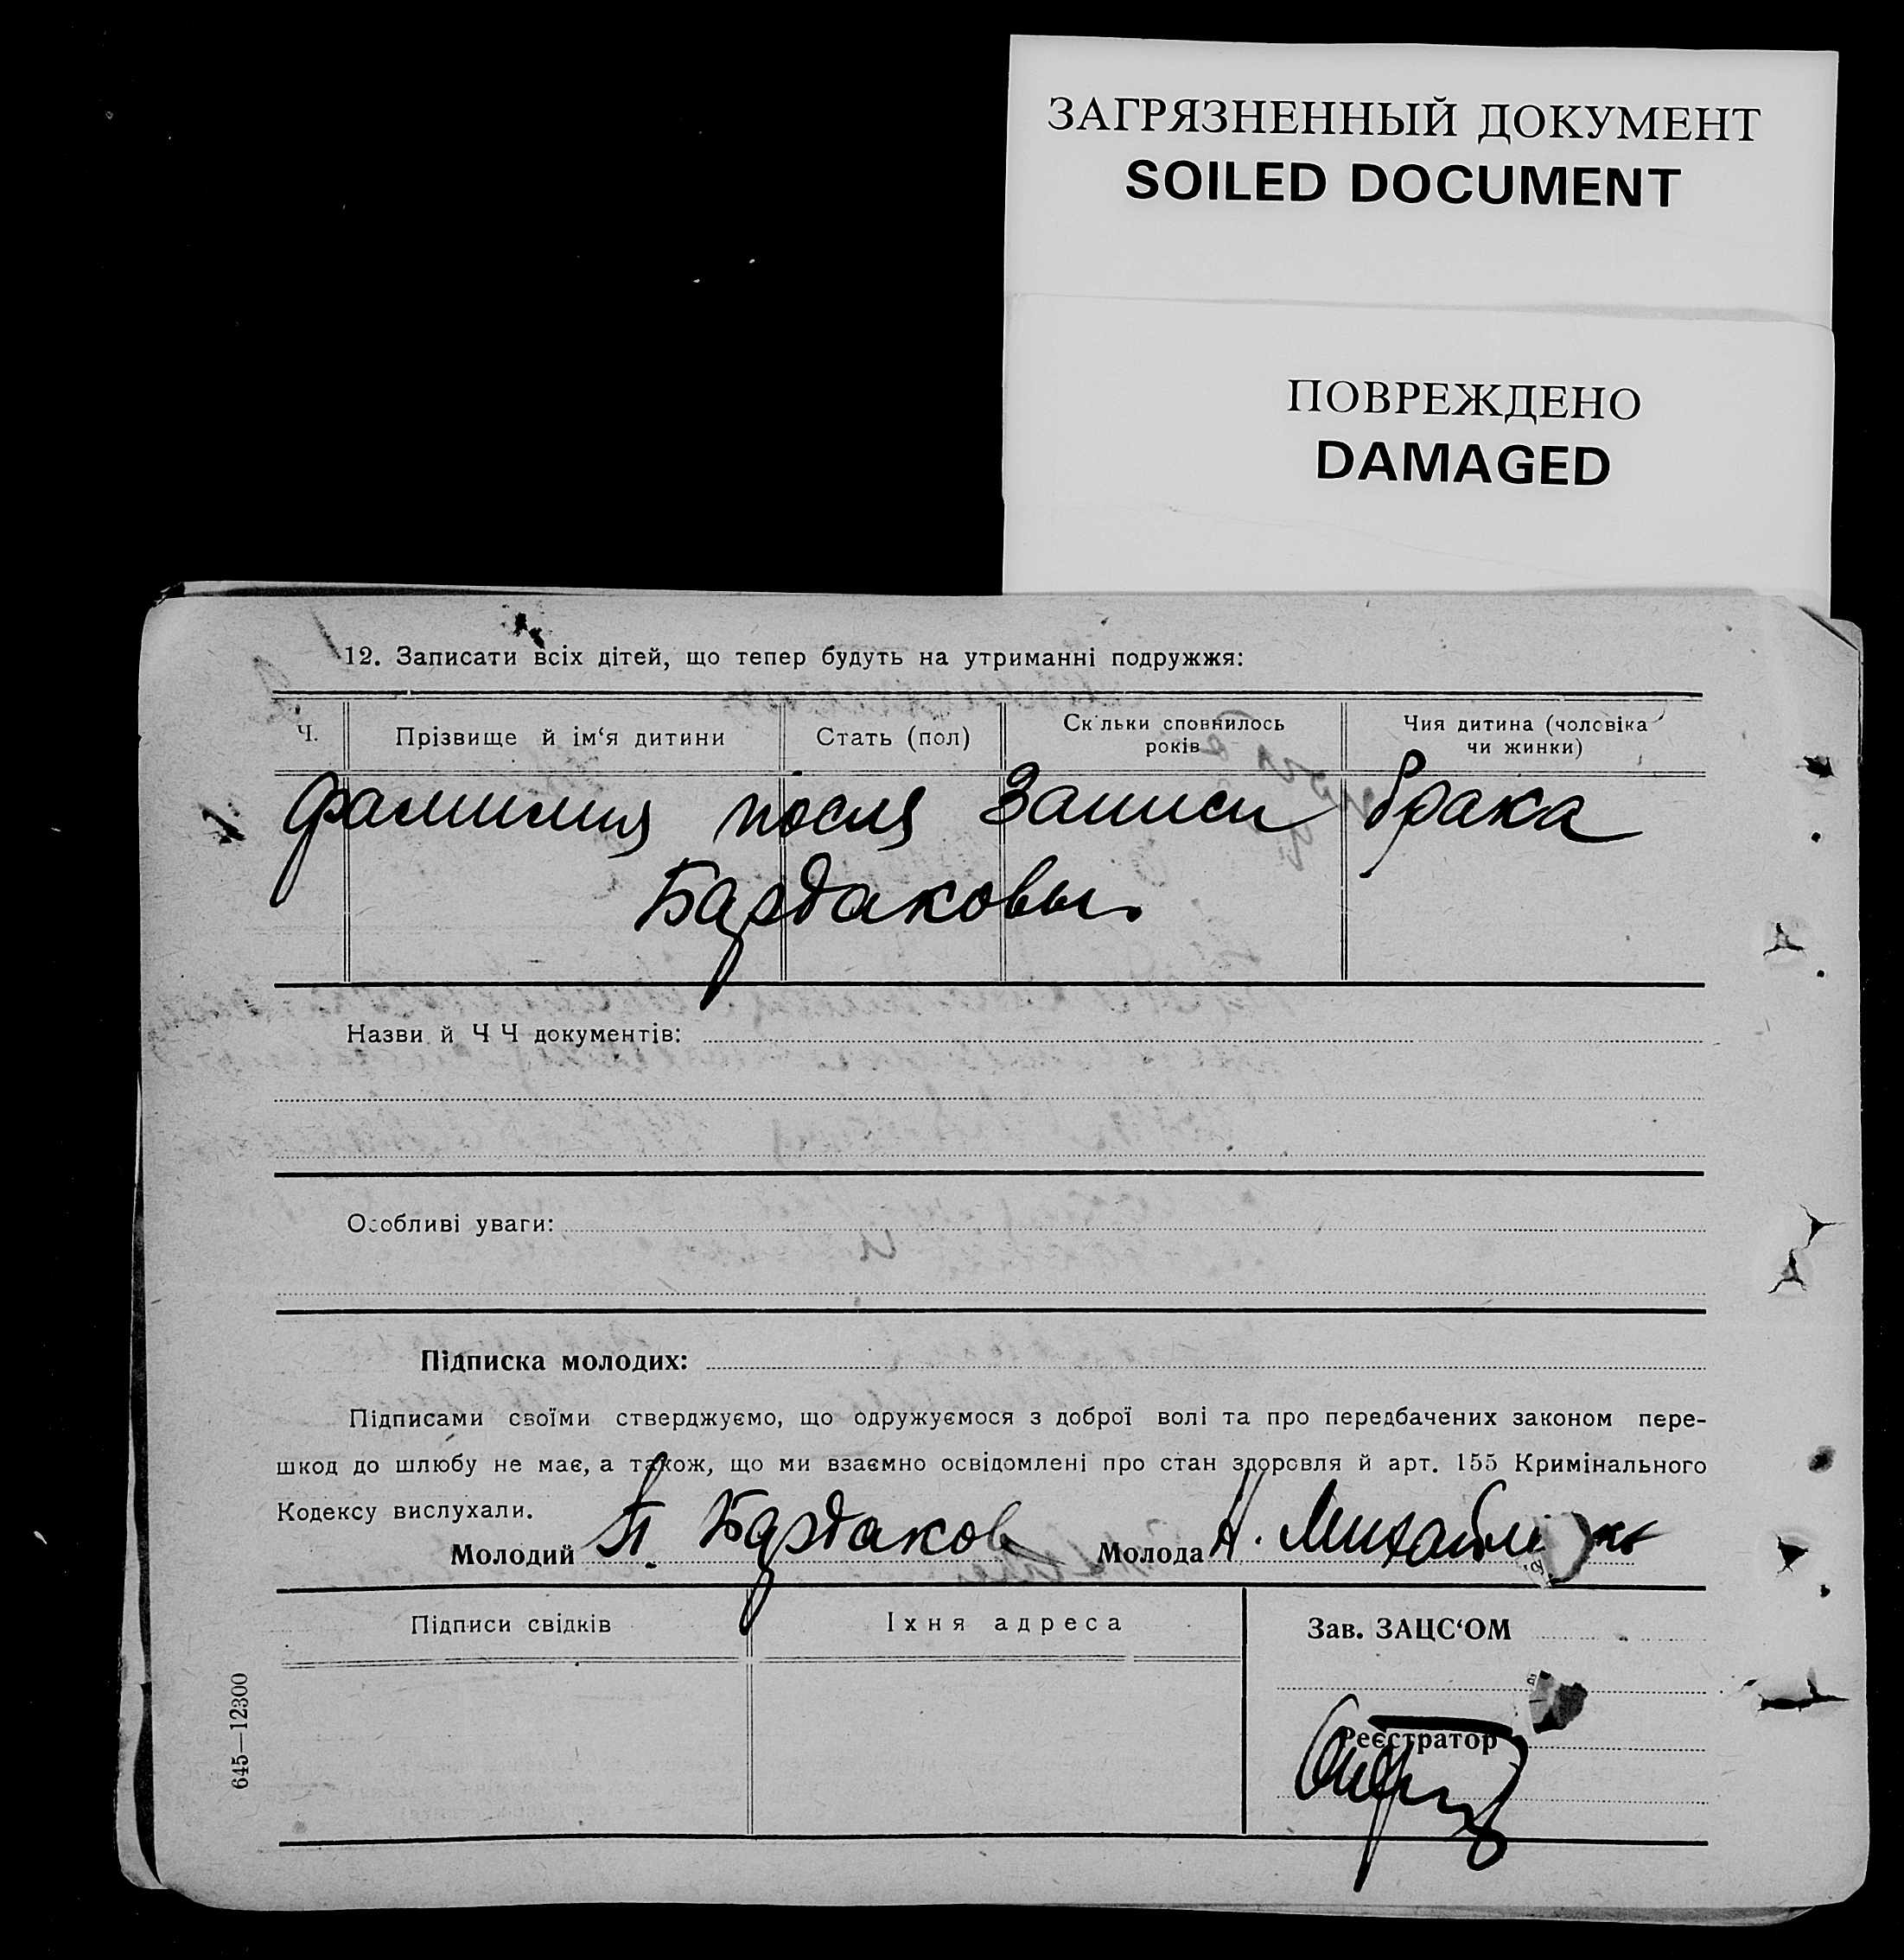 ЗАГРЯЗНЕННЫЙ ДОКУМЕНТ
SOILED DOCUMENT
ПОВРЕЖДЕНО
DAMAGED
12. Записати всіх дітей, що тепер будуть на утриманні подружжя:
Ч.
Прізвище й ім‘я дитини
Стать (пол)
Ск льки сповнилось
років
Чия дитина (чоловіка
чи жинки)
фамилия после Записи брака
Бардаковы.
Назви й Ч Ч документів:
Особливі уваги:
Підписка молодих:
Підписами своїми стверджуємо, що одружуємося з доброї волі та про передбачених законом пере-
шкод до шлюбу не має, а також, що ми взаємно освідомлені про стан здоровля й арт. 155 Кримінального
Кодексу вислухали.
Молодий П. Бардаков Молода Н.
Підписи свідків
Їхня адреса
Зав. ЗАЦС‘ОМ
Реєстратор
645—12300